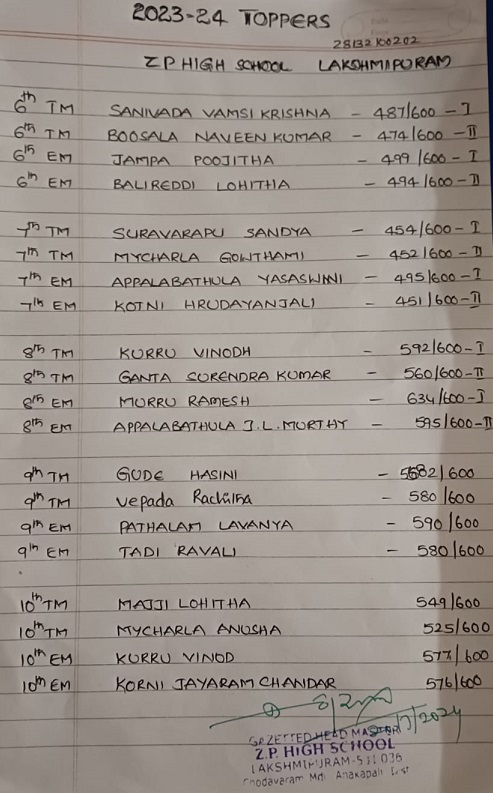 2023-24 TOPPERS
28132100202
Z.P HIGH SCHOOL LAKSHMIPURAM
6th TM SANIVADA VAMSI KRISHNA - 487/600 - I
6th TM BOOSALA NAVEEN KUMAR - 474/600 - II
6th EM JAMPA POOJITHA - 499/600 - I
6th EM BALIREDDI LOHITHA - 494/600 - II
7th TM SURAVARAPU SANDYA - 454/600 - I
7th TM MYCHARLA GOWTHAMI - 452/600 - II
7th EM APPALABATHULA YASASWINI - 495/600 - I
7th EM KOTNI HRUDAYANJALI - 451/600 - II
8th TM KURRU VINODH - 592/600 - I
8th TM GANTA SURENDRA KUMAR - 560/600 - II
8th EM MURRU RAMESH - 634/600 - I
8th EM APPALABATHULA J.L. MURTHY - 595/600 - II
9th TM GUDE HASINI - 582/600
9th TM Vepada Rachana - 580/600
9th EM PATHALAM LAVANYA - 590/600
9th EM TADI RAVALI - 580/600
10th TM MAJJI LOHITHA 549/600
10th TM MYCHARLA ANUSHA 525/600
10th EM KURRU VINOD 577/600
10th EM KORNI JAYARAM CHANDAR 576/600
GAZETTED HEAD MASTER
Z.P. HIGH SCHOOL
LAKSHMIPURAM-531 036
Chodavaram Md. Anakapali Dist